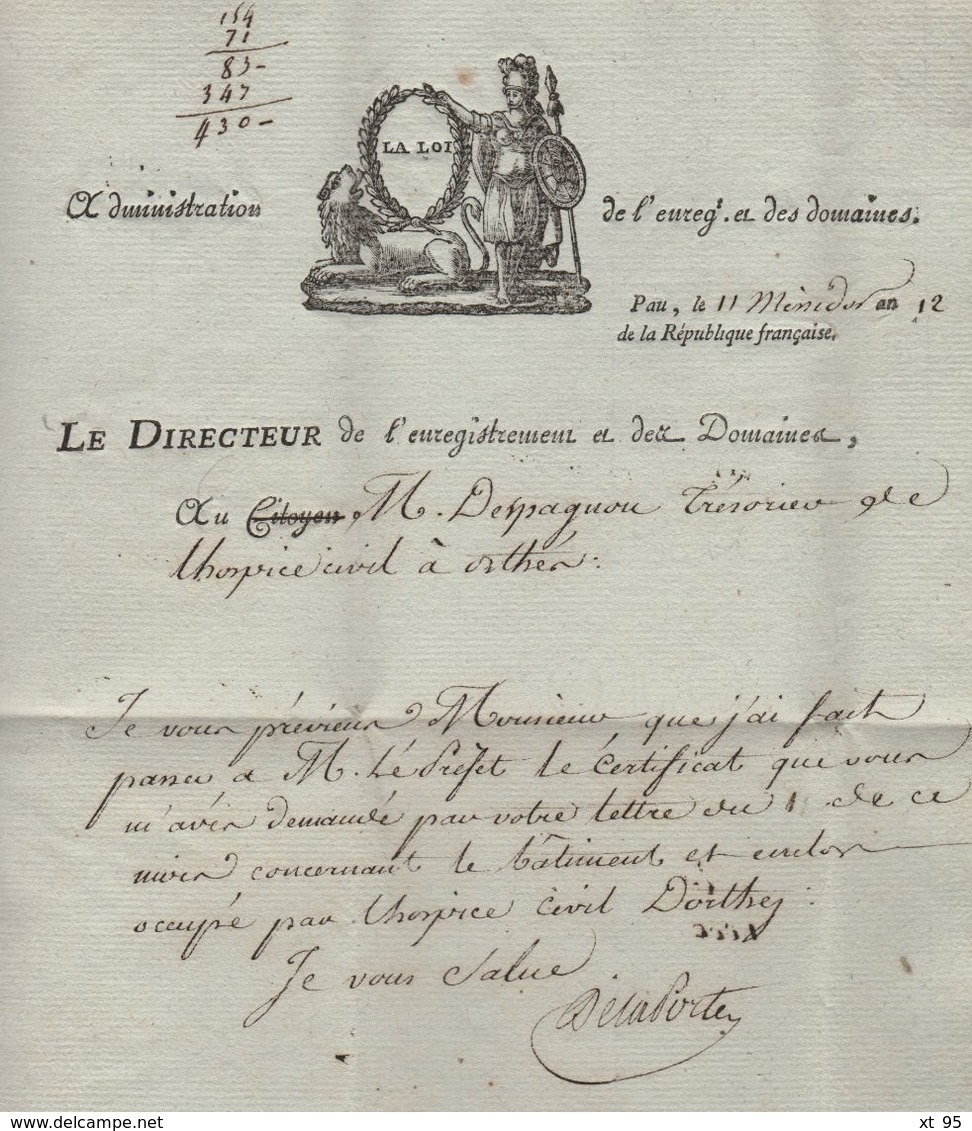 154
71
83-
347
430-
LA LOI
Administration de l'enreg.t et des domaines.
Pau, le 11 Messidor an 12
de la République française.
LE DIRECTEUR de l'enregistrement et des Domaines,
Au Citoyen M. Despagnou Trésorier de
lhospice civil à orthés.
Je vous préviens Monsieur que j'ai fait
passer a M. Le Préfet le Certificat que vous
m'avés demandé par votre lettre du 1 de ce
mois concernant le bâtiment et enclos
occupé par lhospice civil Dorthez.
Je vous Salue
DelaPorte
xt 95